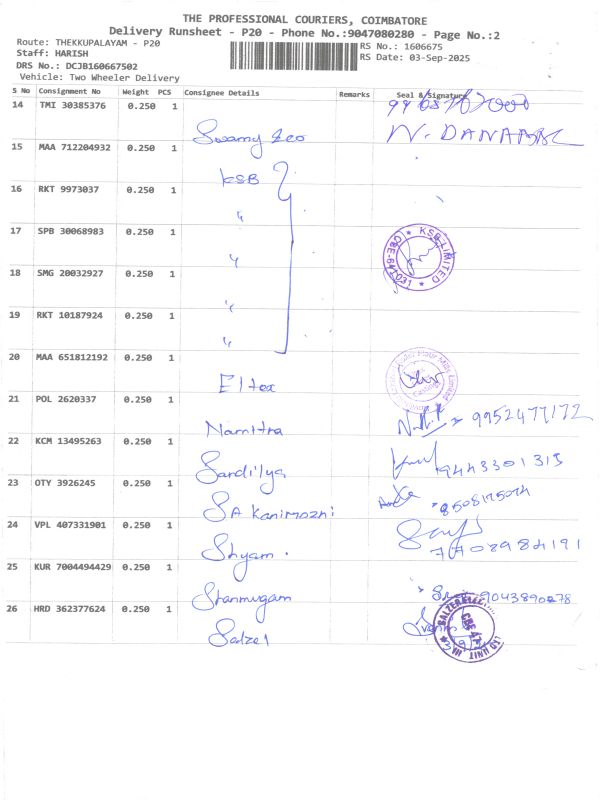 THE PROFESSIONAL COURIERS, COIMBATORE
Delivery Runsheet - P20 - Phone No.:9047080280 - Page No.:2
Route: THEKKUPALAYAM - P20
Staff: HARISH
DRS No.: DCJB160667502
Vehicle: Two Wheeler Delivery
RS No.: 1606675
RS Date: 03-Sep-2025
S No Consignment No Weight PCS Consignee Details Remarks Seal & Signature
14 TMI 30385376 0.250 1 Swamy
15 MAA 712204932 0.250 1 KSB
16 RKT 9973037 0.250 1 "
17 SPB 30068983 0.250 1 " KSB LIMITED CBE-641031
18 SMG 20032927 0.250 1 "
19 RKT 10187924 0.250 1 "
20 MAA 651812192 0.250 1 Eltex
21 POL 2620337 0.250 1 Namitra 9952477172
22 KCM 13495263 0.250 1 Sandilya 9443301315
23 OTY 3926245 0.250 1 SA Kanimozhi
24 VPL 407331901 0.250 1 Shyam. 7708984191
25 KUR 7004494429 0.250 1 Shanmugam 9043890278
26 HRD 362377624 0.250 1 Salzer